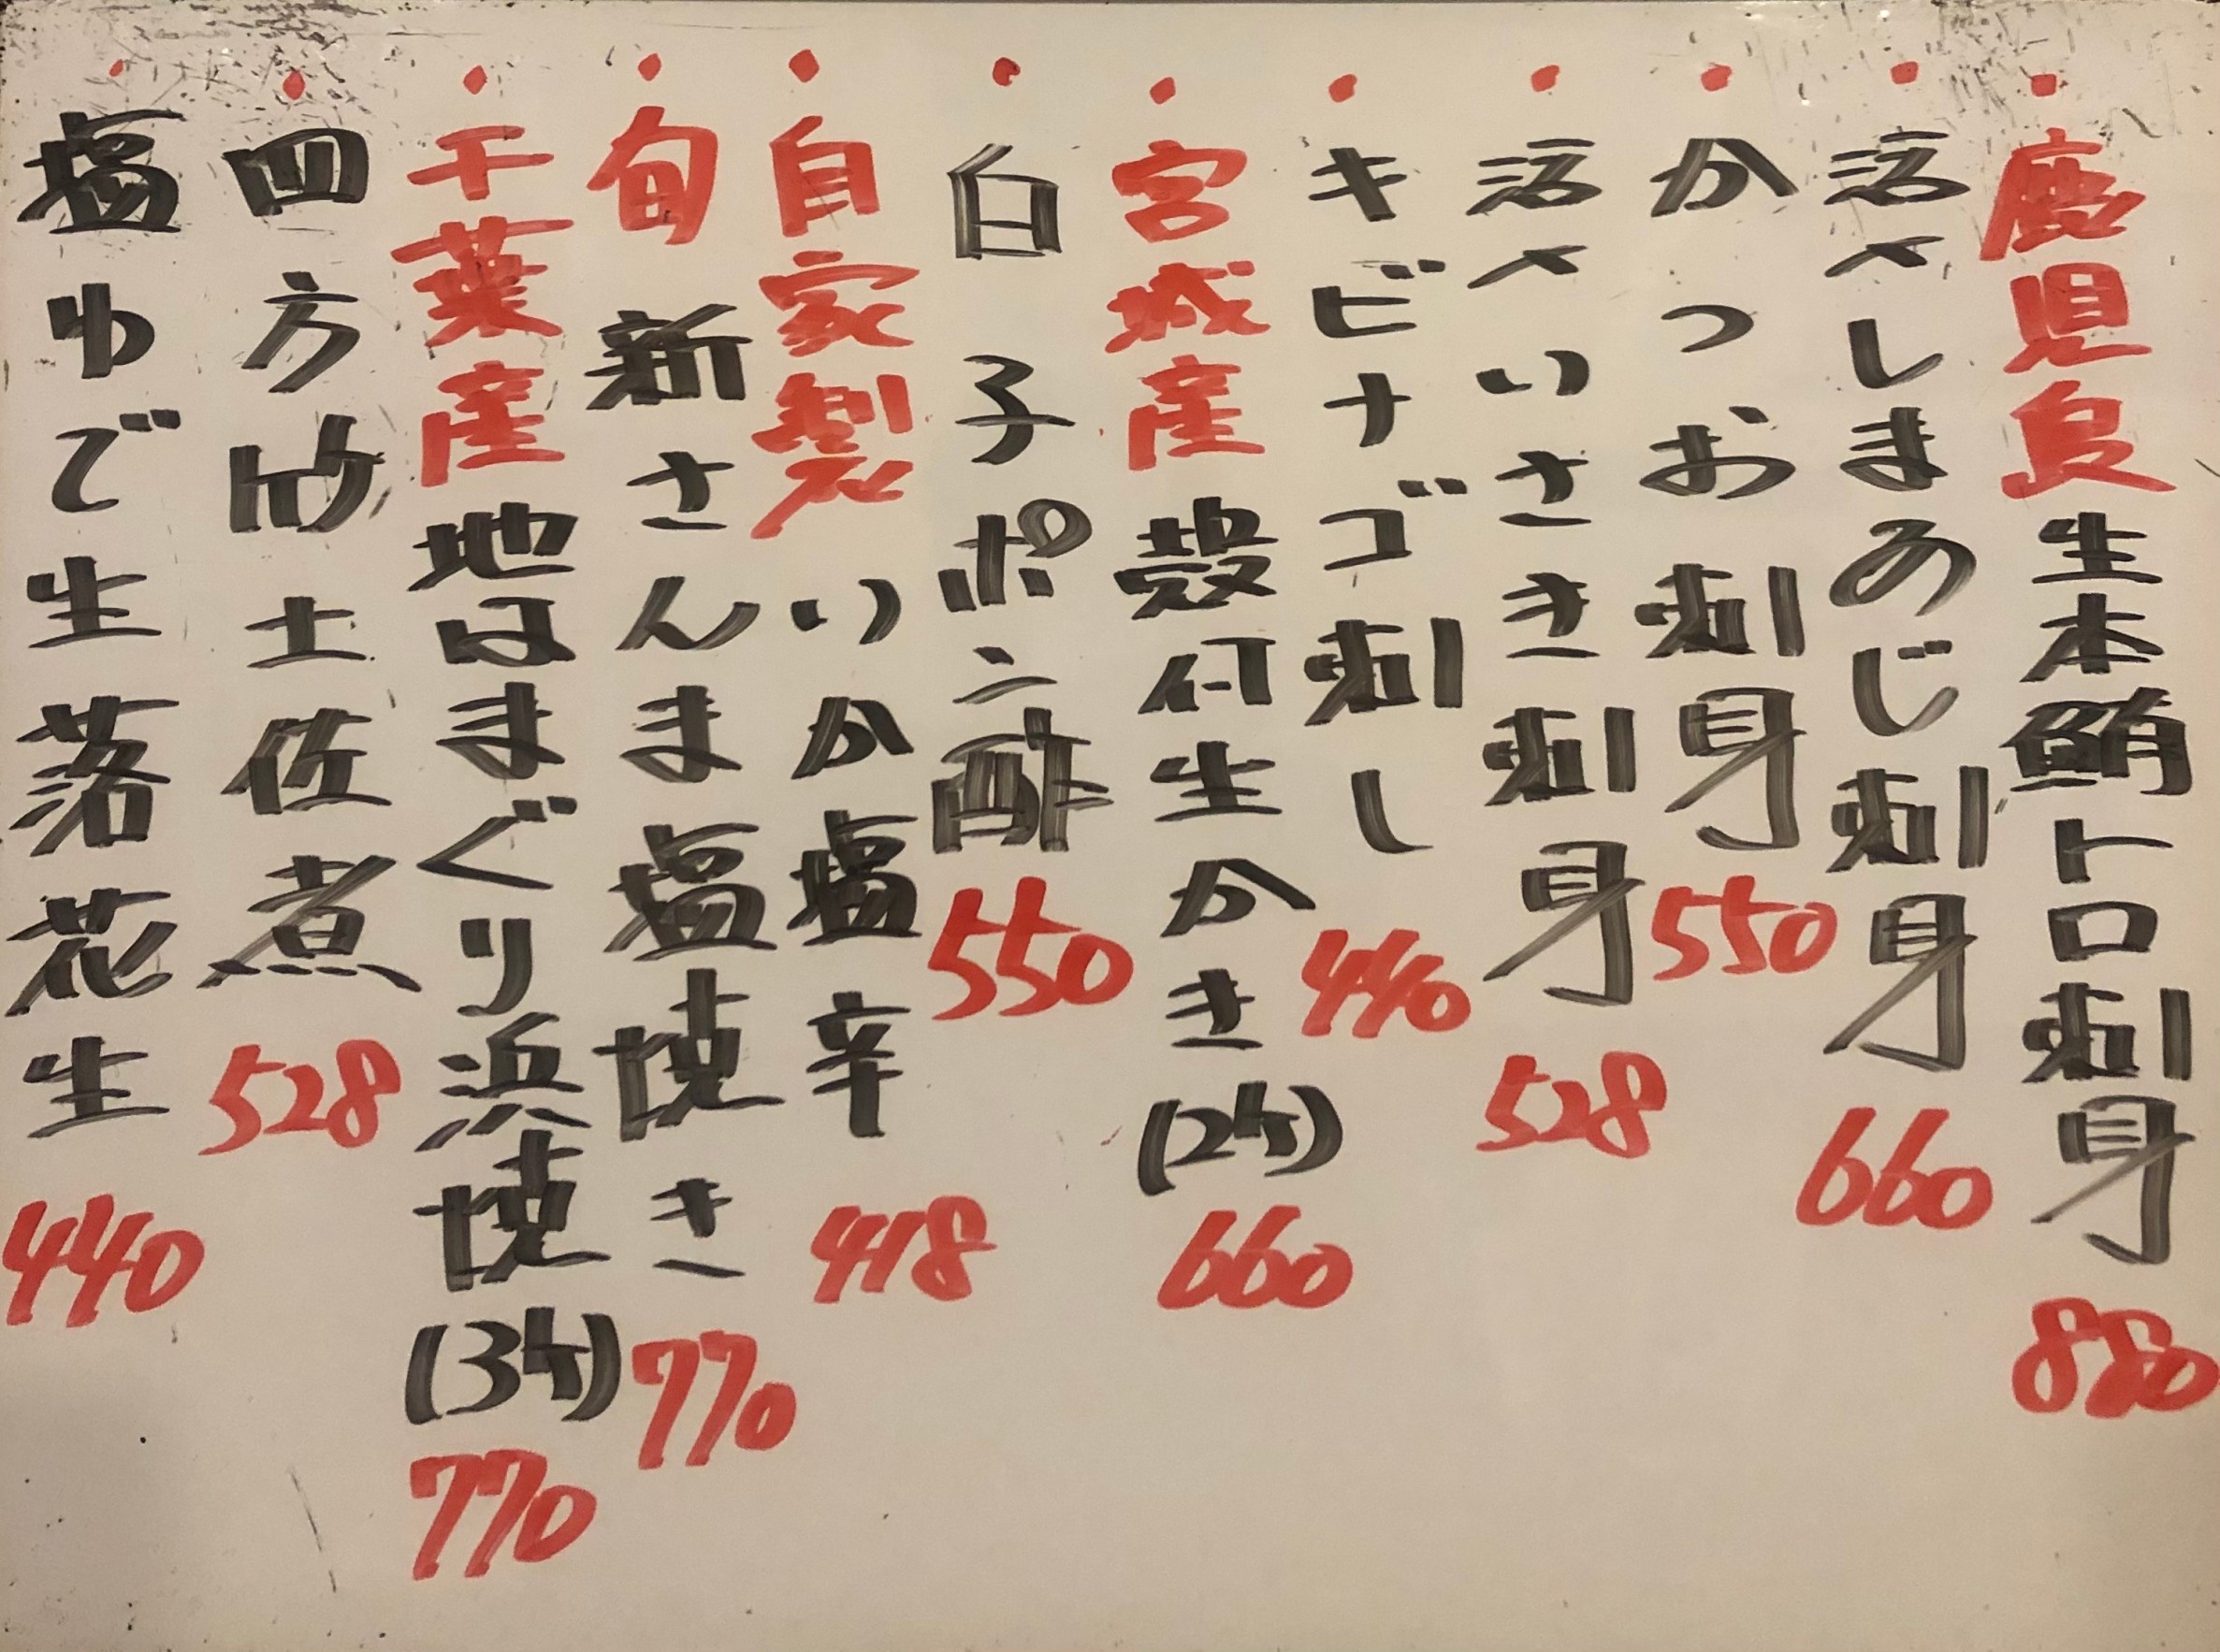 ・鹿児島生本鮪トロ刺身 880
・活〆しまあじ刺身 660
・かつお刺身 550
・活〆いさき刺身 528
・キビナゴ刺し 440
・宮城産殻付生かき(2ケ) 660
・白子ポン酢 550
・自家製いか塩辛 418
・旬新さんま塩焼き 770
・千葉産地はまぐり浜焼(3ケ) 770
・四方竹土佐煮 528
・塩ゆで生落花生 440